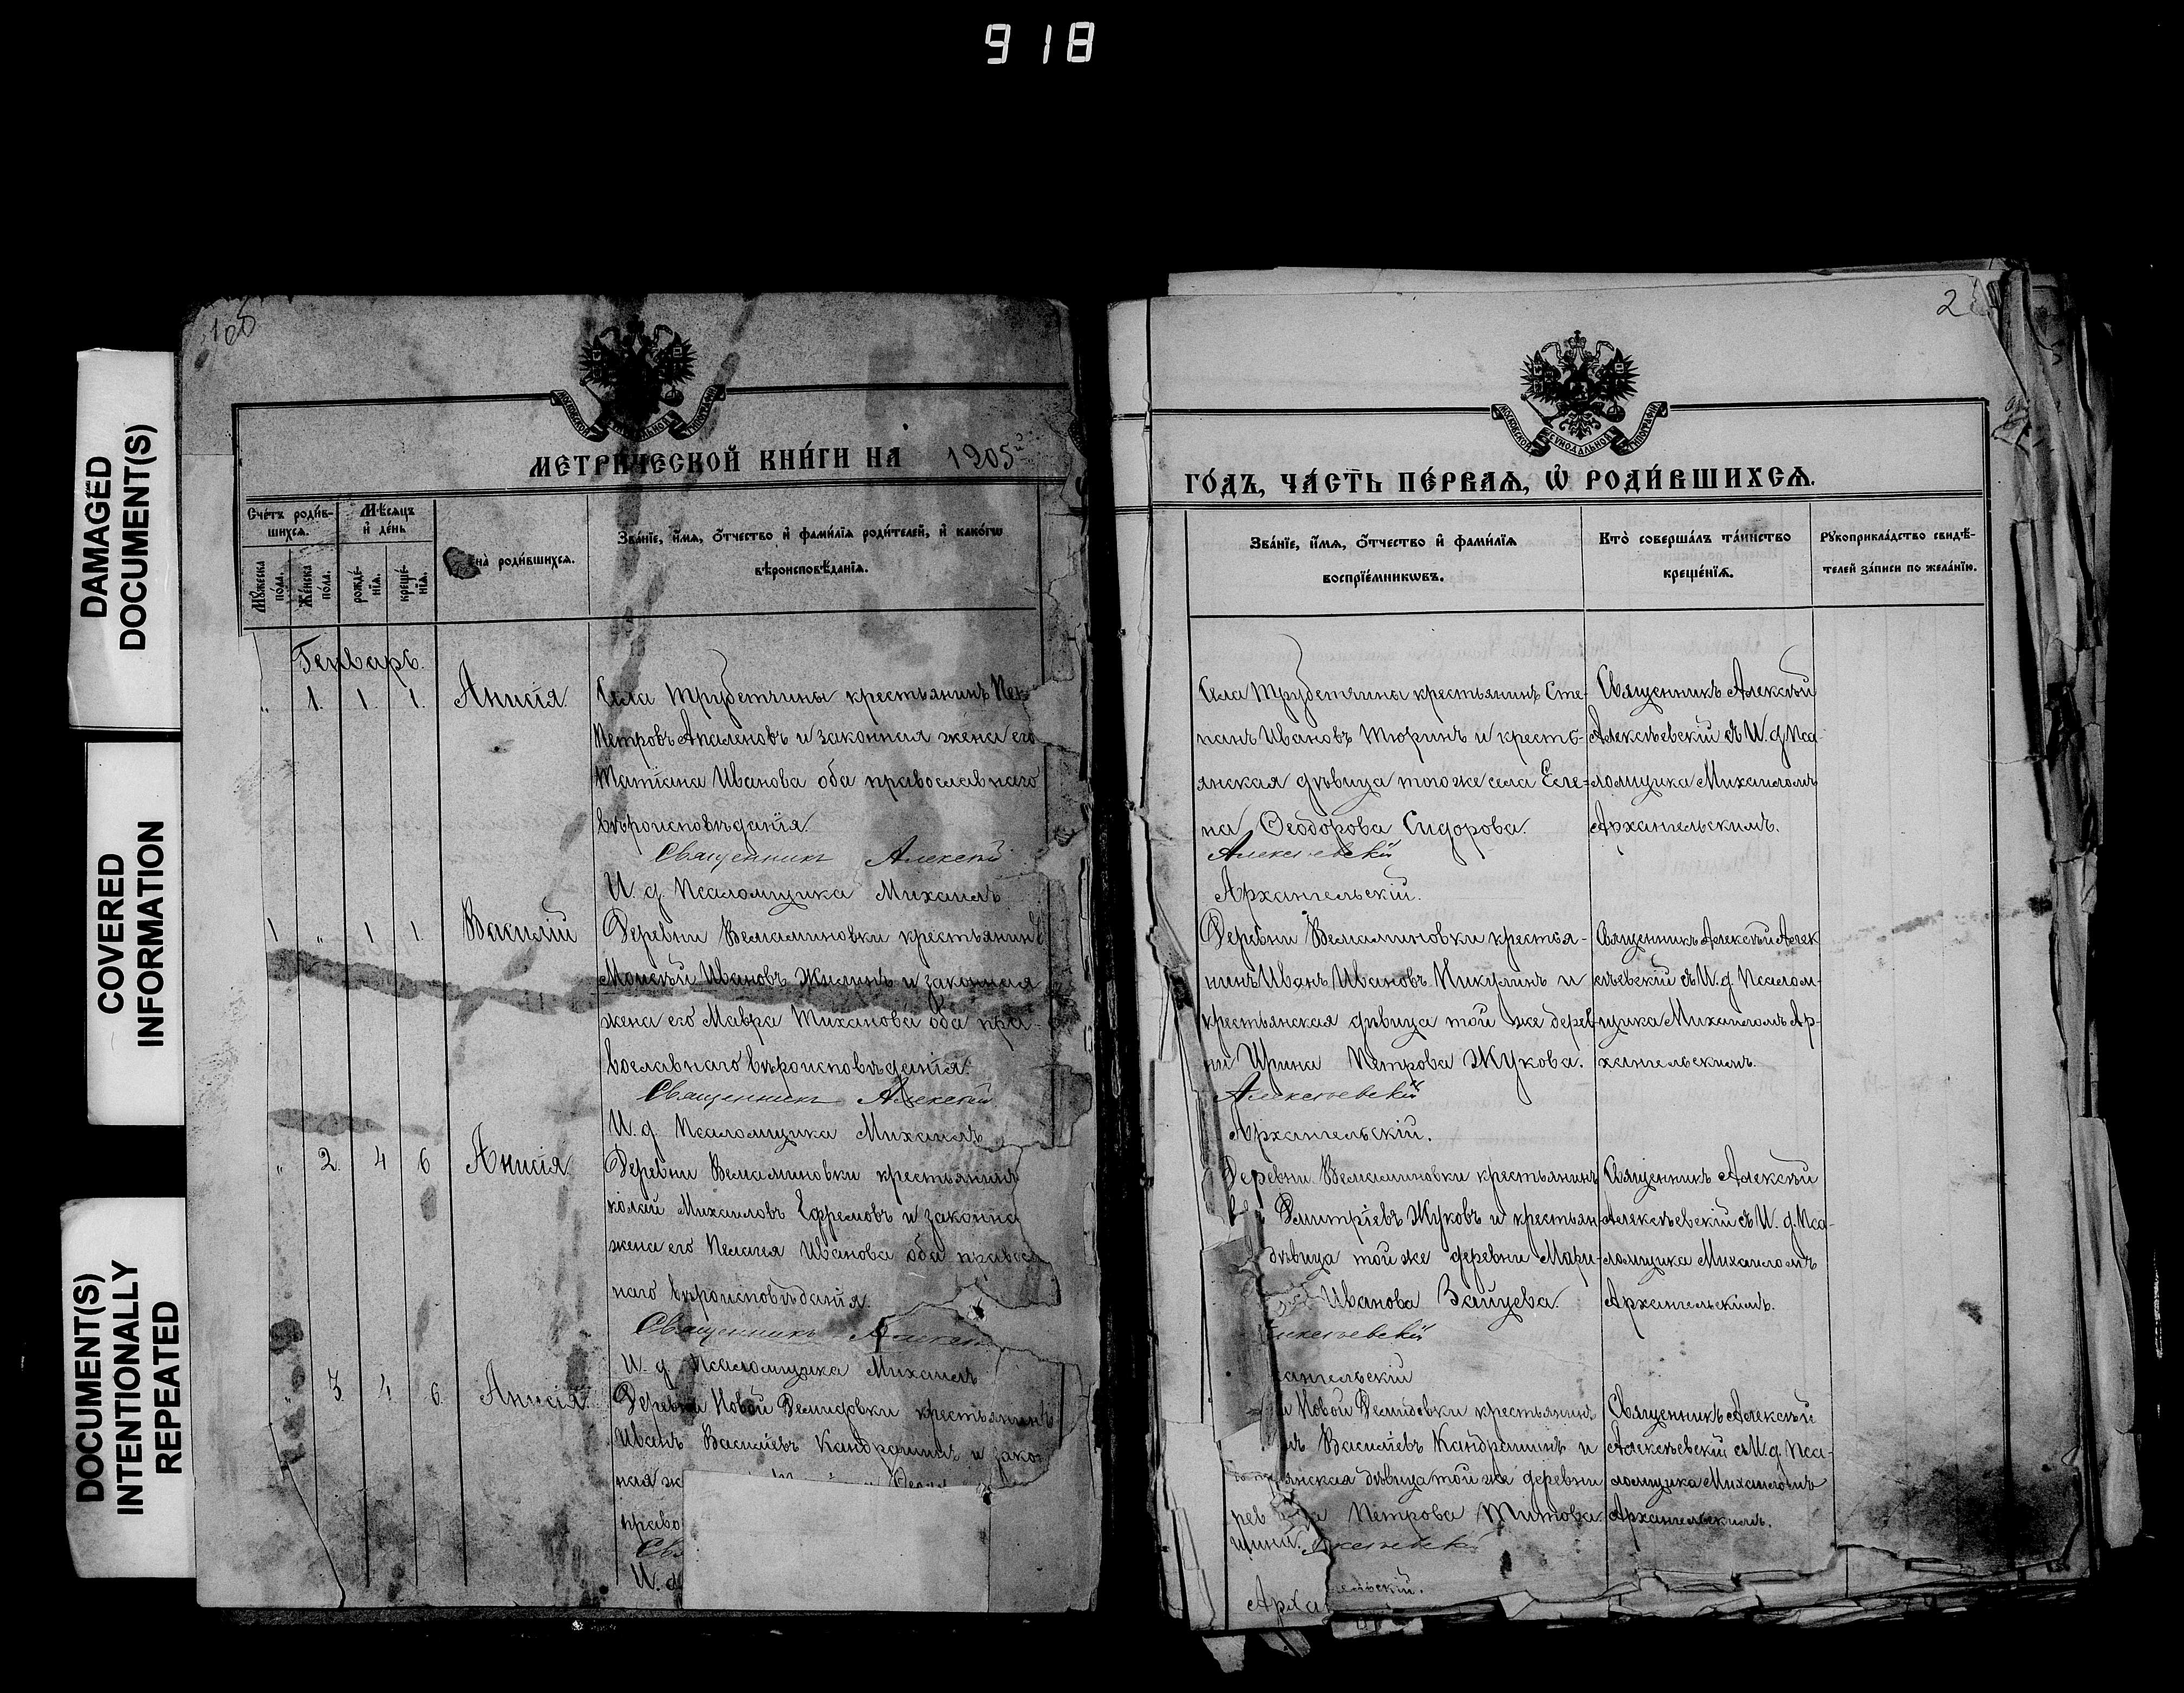 918
DAMAGED
DOCUMENT(S)
COVERED
INFORMATION
DOCUMENT(S)
INTENTIONALLY
REPEATED
МОСКОВСКОЙ СѴНОДАЛЬНОЙ ТИПОГРАФІИ
МЕТРИЧЕСКОЙ КНИ́ГИ НА 1905
Сче́тъ роди́в-
шихсѧ.
Мѣ́сѧцъ
и҆ де́нь
Мꙋ́жеска
по́ла.
Же́нска
по́ла.
рожде́-
нїѧ.
креще́-
нїѧ.
роди́вшихсѧ.
Зва́нїе, и҆́мѧ, ѻ҆́тчество и҆ фами́лїѧ роди́телей, и҆ како́гѡ
вѣроисповѣ́данїѧ.
Генварь.
" 1. 1. 1. Анисія
Села Трубетчины крестьянинъ
Петровъ Апаленовъ и законная жена его
Татіана Иванова оба православнаго
вѣроисповѣданія.
Священникъ Алексѣй
И. д. Псаломщика Михаилъ
1 " 1 1. Василій
Деревни Вельаминовки крестьянинъ
Моисѣй Ивановъ Жилинъ и законная
жена его Мавра Тиханова оба пра-
вославнаго вѣроисповѣданія.
Священникъ Алексѣй
И. д. Псаломщика Михаилъ
" 2. 4 6 Анисія
Деревни Вельаминовки крестьянинъ
колай Михаиловъ Ефремовъ и законна
жена его Пелагея Иванова оба правос
наго вѣроисповѣданія.
Священникъ Алексѣй
И. д. Псаломщика Михаилъ
" 3 4 6 Анисія
Деревни Новой Демидовки крестьянинъ
Иванъ Василіевъ Кандрашинъ и закон
ная ж
право
Свя
И. д
2
МОСКОВСКОЙ СѴНОДАЛЬНОЙ ТИПОГРАФІИ
ГО́ДЪ, ЧА́СТЬ ПЕ́РВАѦ, Ѡ҆ РОДИ́ВШИХСѦ.
Зва́нїе, и҆́мѧ, ѻ҆́тчество и҆ фами́лїѧ
воспрїе́мникѡвъ.
Кто̀ соверша́лъ та́инство
креще́нїѧ.
Рꙋкоприкла́дство свидѣ́-
телей за́писи по жела́нїю.
Села Трубетчины крестьянинъ Сте-
панъ Ивановъ Тюринъ и кресть-
янская дѣвица того же села Еле-
на Ѳеодорова Сидорова.
Алексѣевскій
Архангельскій.
Священникъ Алексѣй
Алексѣевскій съ И. д. Пса-
ломщика Михаиломъ
Архангельскимъ.
Деревни Вельаминовки крестья-
нинъ Иванъ Ивановъ Никулинъ и
крестьянская дѣвица той же дерев-
ни Ирина Петрова Жукова.
Алексѣевскій
Архангельскій.
Священникъ Алексѣй Алек
сѣевскій съ И. д. Псалом-
щика Михаиломъ Ар-
хангельскимъ.
Деревни Вельаминовки крестьянинъ
Димитріевъ Жуковъ и крестьян-
дѣвица той же деревни Мари-
Иванова Зайцева.
лексѣевскій
ангельскій
Священникъ Алексѣй
Алексѣевскій съ И. д. Пса-
ломщика Михаиломъ
Архангельскимъ.
и Новой Демидовки крестьянинъ
Василіевъ Кандрашинъ и
янская дѣвица той же деревни
Петрова Титова.
Священникъ Алексѣй
Алексѣевскій съ И. д. Пса-
ломщика Михаиломъ
Архангельскимъ.
ельскій.
Арха